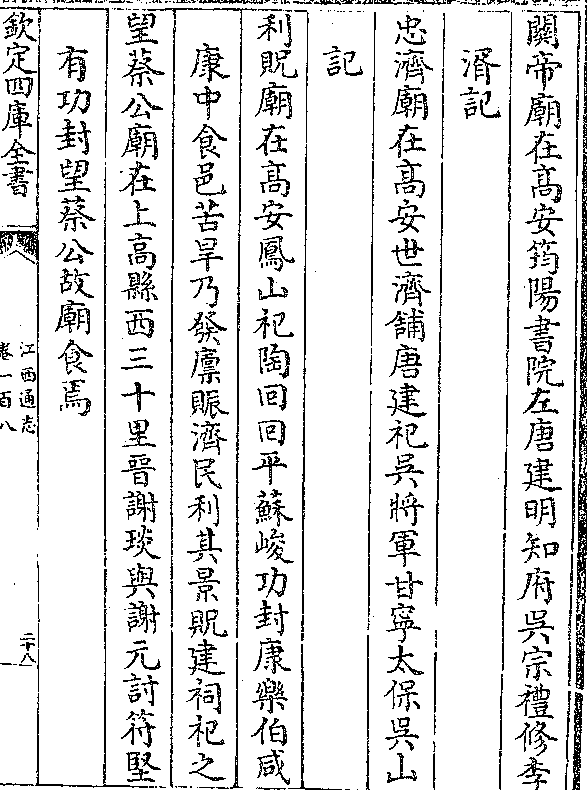 關帝廟在髙安筠陽書院左唐建明知府吳宗禮修李
湑記
忠濟廟在髙安世濟舖唐建祀吳將軍甘寧太保吳山
記
利貺廟在髙安鳳山祀陶回回平蘇峻功封康樂伯咸
康中食邑苦旱乃發廪賑濟民利其景貺建祠祀之
望蔡公廟在上高縣西三十里晉謝琰與謝元討符堅
有功封望蔡公故廟食焉
欽定四庫全書
江西通志
卷一百八
二十八